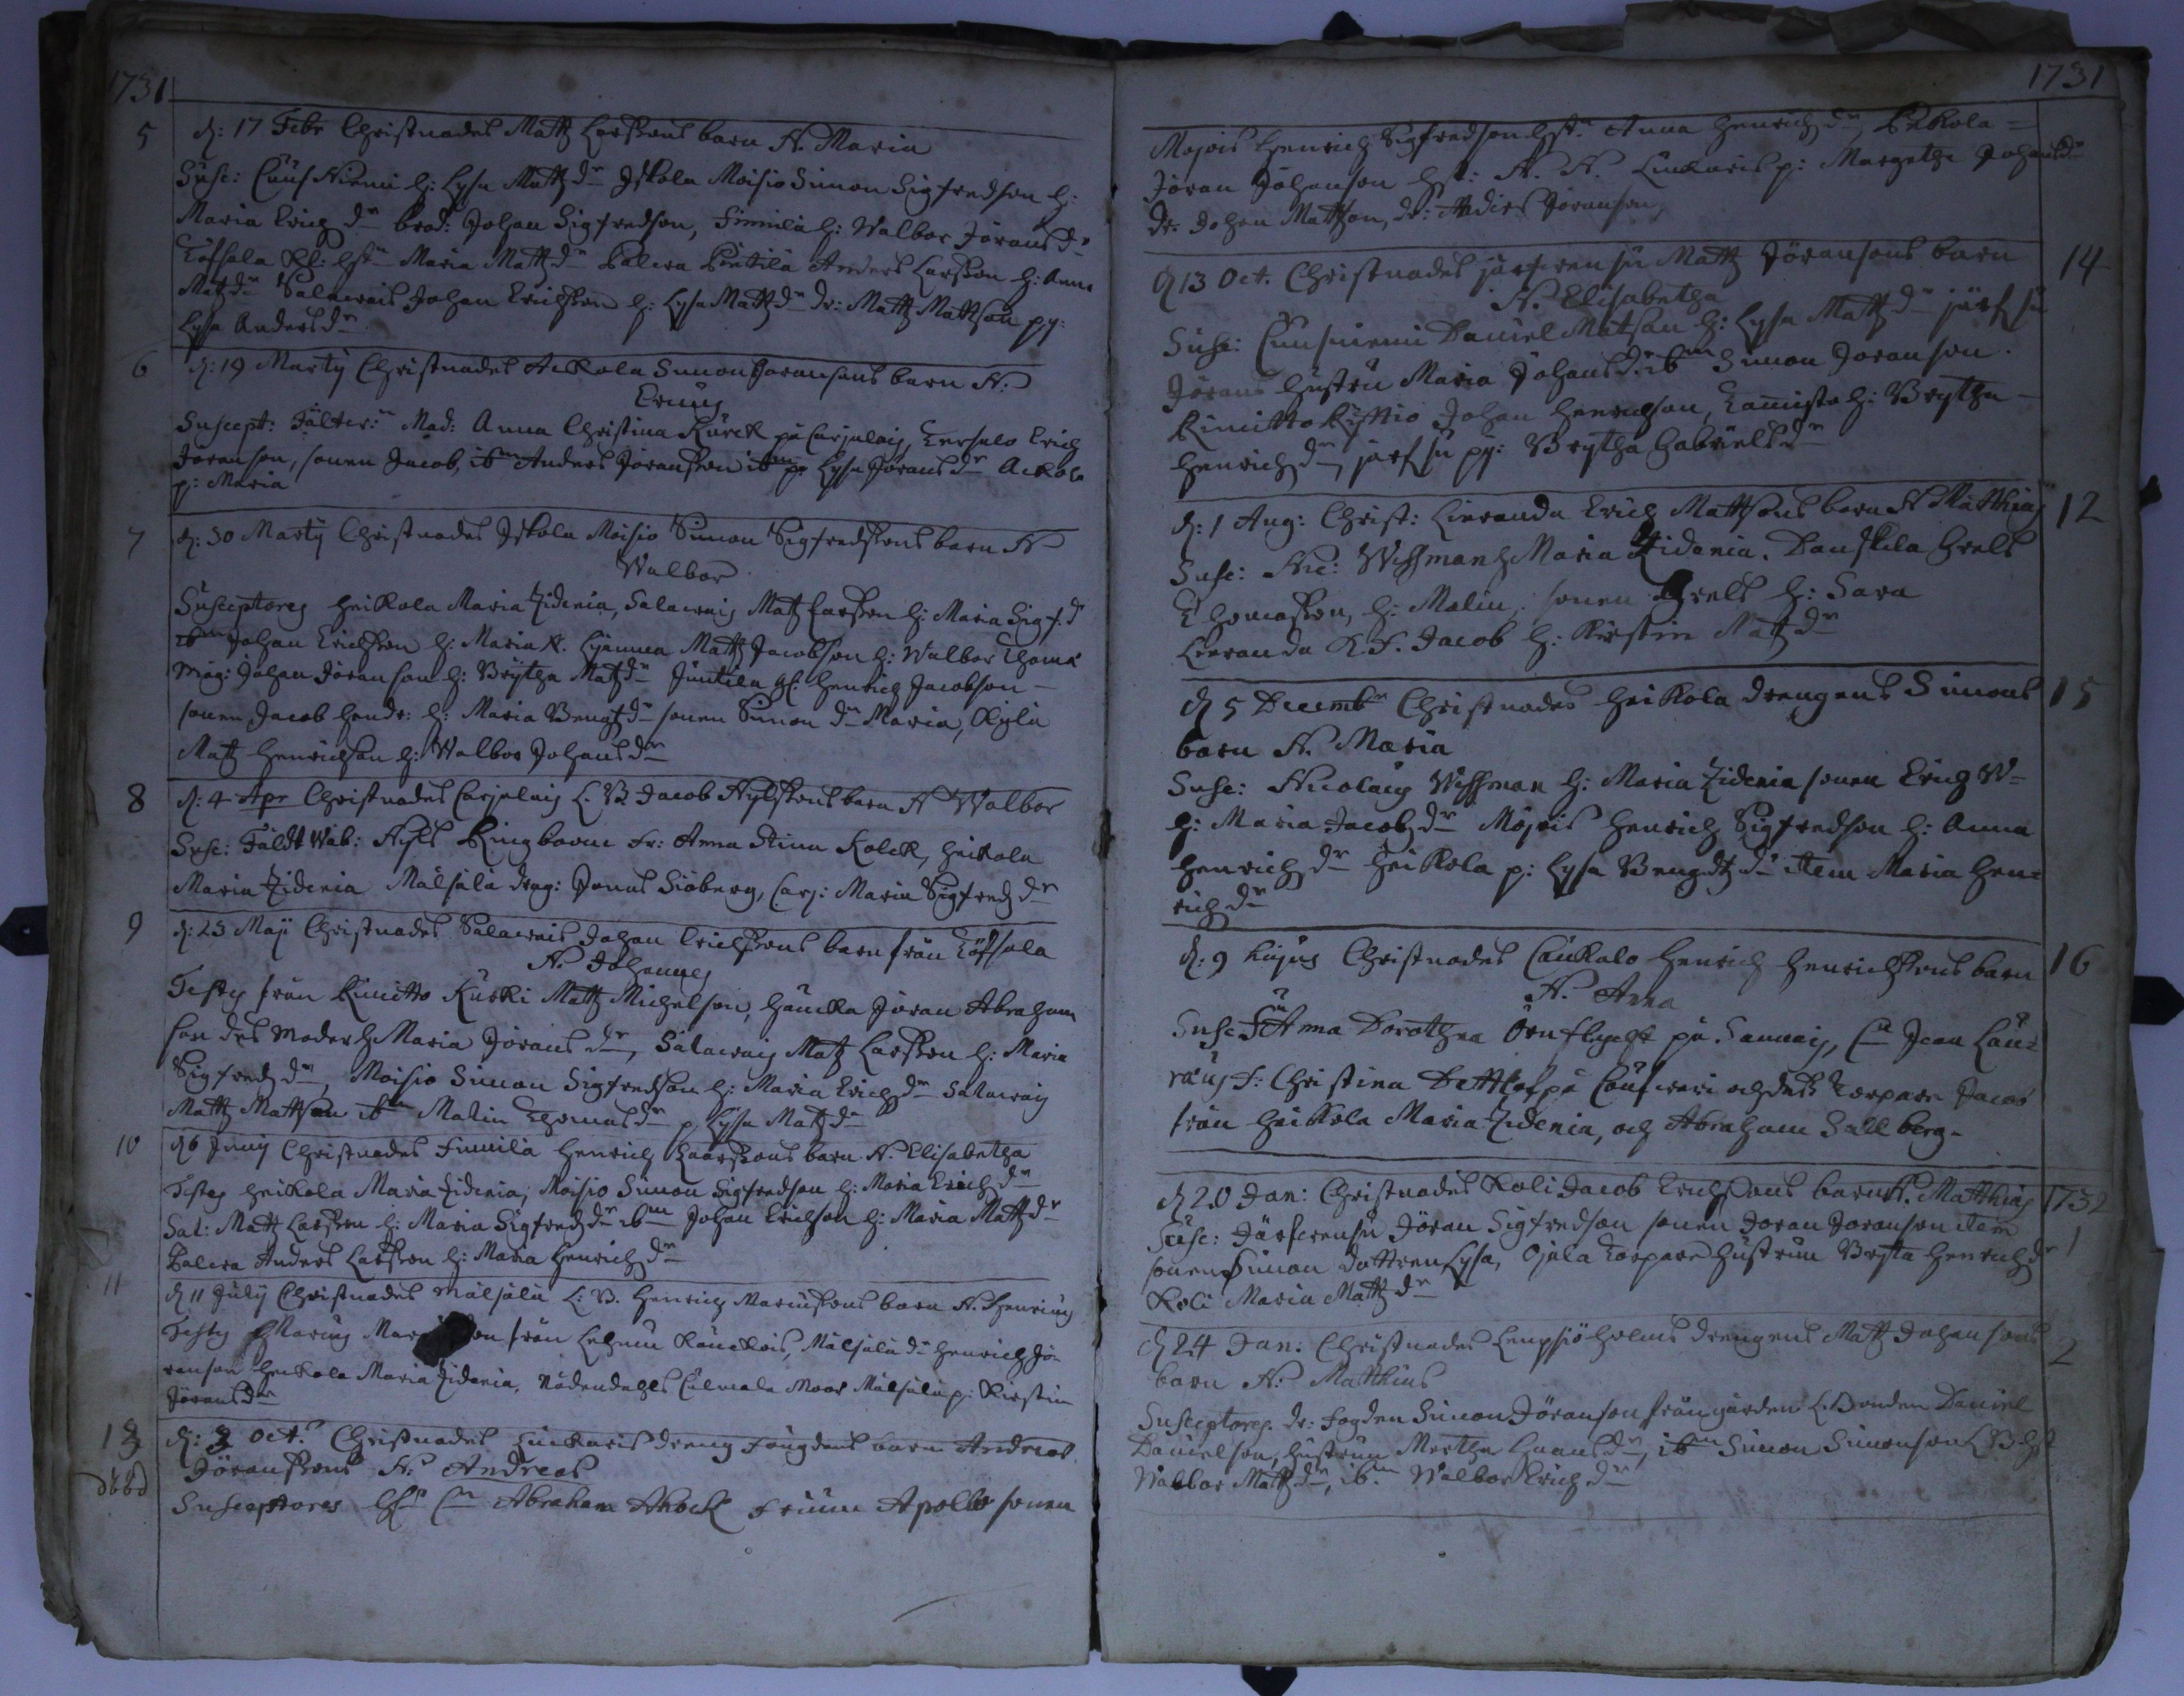 1731
5 d: 17 Febr Christnades Matz Larssons barn N. Maria
Susc: Cuusniemi h: Lysa Mattz dr Iskola Moisio Simon Sigfredson h:
Maria Erich dr brod: Johan Sigfredson, Simila h: Walbor Jörans dr
Töfsala Kl: hstr Maria Mattz dr Palwa Pentilä Anders Larsson h: Anna
Matz dr Salawais Johan Erichsson h: Lysa Mattz dr dr: Mattz Mattson py:
Lysa Anders dr
6 d: 19 Martÿ Christnades Ackola Simon Joransons barn N:
Ericus
Suscept: Fälter: Mad: Anna Christina Kurck på Carjalais, Kersalo Erich
Joranson, sonen Jacob, ibm Anders Joransson ibm p: Lysa Jorans dr Ackola
p: Maria
7 d: 30 Martÿ Christnades Iskola Moisio Simon Sigfredssons barn N
Walbor
Susceptores Heikola Maria Zidenia, Salawais Matz Larsson h: Maria Sigf: d
ibm Johan Erichsson h: Maria N. Mattz Jacobson h: Walbor Thoma
måg: Johan Joranson h: Brÿtha Matz dr Juntila gl. Henrich Jacobson
sonen Jacob Hendr: h: Maria Bengtz dr sonen Simon dr Maria, Kylä
Matz Henrichson h: Walbor Johans dr
8 d: 4 Apr Christnades Carjalais L. B Jacob Nylssons barn N Walbor
Susc: Fäldt Wäb: Nils Ringboms fr: Anna Stina Kolck, Heikola
Maria Zidenia Målsala drag: Jonas Siöberg, Carj: Maria Sigfredz dr
9 d: 23 Maji Christnades Salawais Johan Erichssons barn från Töfsala
N. Johannes
Testes från Rimitto Kurki Mattz Michelson, Haucka Jöran Abraham
son des moder h Maria Jörans dr, Salawais Matz Larsson h: Maria
Sigfredz dr, Moisio Simon Sigfredson h: Maria Erichz dr Salawais
Mattz Mattson ibm Malin Thomas dr p. Lysa Matz dr
10 d 6 Junij Christnades Simila Henrich Larssons barn N. Elisabetha
Testes Heikola Maria Zidenia, Moisio Simon Sigfredson h: Maria Erich dr
Sal: Mattz Larsson h: Maria Sigfredz dr ibm Johan Erichson h: Maria Mattz dr
Palwa Anders Larsson h: Maria Henrich dr
11 d 11 Julij Christnades Målsala L: B. Henrich Marcussons barn N. Henricus
Testes Marcus från Lehmu Kauckois, Målsala dr Henrich Jö-
ranson Heikola Maria Zidenia, Nådendahls Culmala Moor Målsala p: Kirstin
Jörans dr
13 d: 3 Oct: Christnades Luckaris dreng fougdens barn Andreas
Jöranssons N. Andreas
Susceptores Hl Cn Abraham Ahock fruun Apollo sonen
1731
Mojois Henrich Sigfredson hstr Anna Henrich dr, Pukola
Jöran Johanson hst: N. N. Luckaris p: Margetha Johans dr
dr. Johan Mattson, dr: Andies Joranson,
14 d 13 Oct. Christnades Järfwensu Mattz Jöransons barn
N. Elisabetha
Susc: Cuusniemi Daniel Matson h: Lysa Mattz dr Järf su
Jörans hustru Maria Johans dr ibm Simon Joranson.
Rimitto Johan Henrichson, h: Brytha
Henrich dr, Järf su py: Brytha Gabriels dr
12 d: 1 Aug: Christ: Lieranda Erich Mattsons barn N Matthias
Susc: Nic: Wessman h Maria Zidenia. Danskila Grels
Thomasson, h: Malin, sonen Grels h: Sara
Lieranda K.F. Jacob h: Kirstin Matz dr
15 d 5 Decembr Christnades Heikola drengens Simons
barn N. Maria
Susc: Nicolaus Wessman h: Maria Zidenia sonen Erich W-
h: Maria Jacobz dr Mojois Henrich Sigfredson h: Anna
Henrich dr Heikola p: Lysa Bengtz dr item Maria Hen=
rich dr
16 d: 9 hujus Christnades Cankalo Henrich Henrichssons barn
N. Anna
Susc: Fru Anna Dorothea Örnflycht på Sannais, Cn Jean Lau=
ræus F: Christina på och dess Torpare Jacob
från Heikola Maria Zidenia, och Abraham Sallberg-
1732
1 d 20 Jan: Christnades Koli Jacob Erichssons barn N. Matthias
Susc: Järfwensu Jöran Sigfredson sonen Joran Joranson item
sonen Simon dottren Lysa, Ojala Torpare hustrun Brita Henrich dr
Koli Maria Mattz dr
2 d 24 Jan: Christnades Lempsiöholms drengens Mattz Johansons
barn N: Matthias
Susceptores. dr: fogden Simon Jöranson från gården L. Bonden Daniel
Danielson, hustrun Mertha Hans dr, ibm Simon Simonson L B hst
Walbor Mattz dr, ib. Walbor Erich dr